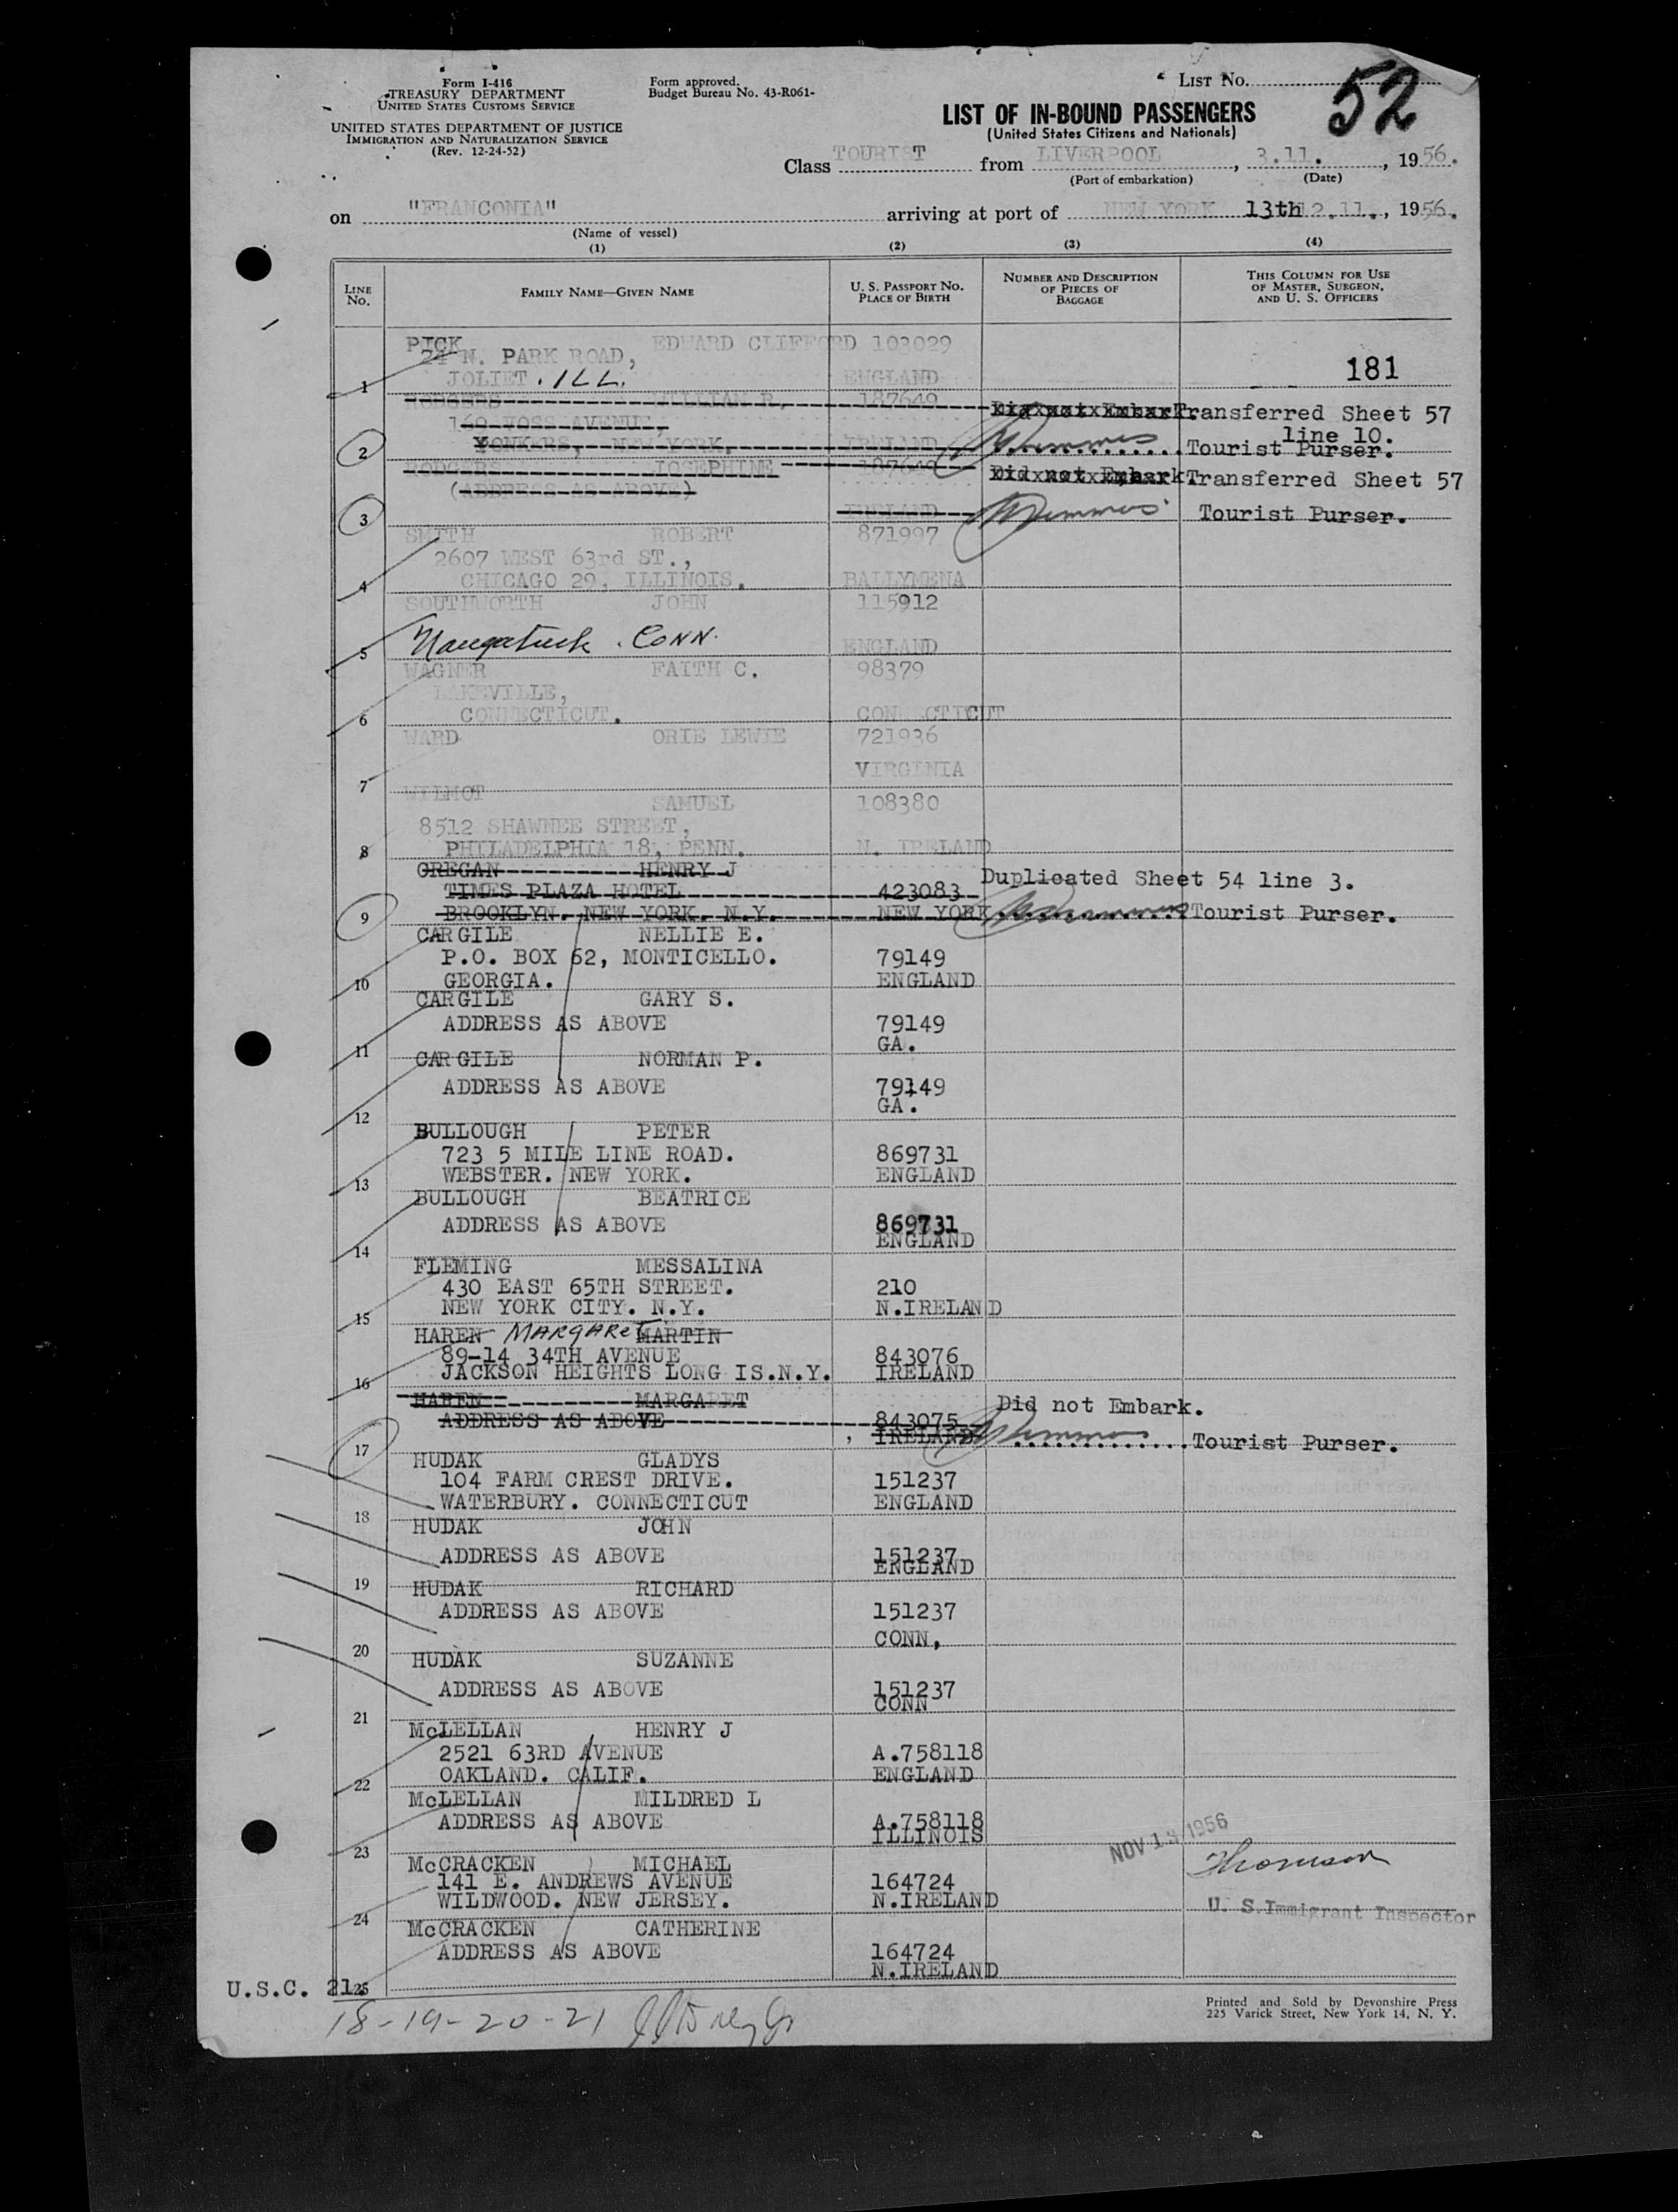 Form I-416
TREASURY DEPARTMENT
UNITED STATES CUSTOMS SERVICE
UNITED STATES DEPARTMENT OF JUSTICE
IMMIGRATION AND NATURALIZATION SERVICE
(Rev. 12-24-52)
Form approved.
Budget Bureau No. 43-R061-
LIST No. 52
LIST OF IN-BOUND PASSENGERS
(United States Citizens and Nationals)
Class TOURIST from LIVERPOOL, 3.11., 1956.
(Port of embarkation) (Date)
on "FRANCONIA" arriving at port of NEW YORK 13th 12.11., 1956.
(Name of vessel)
(1) (2) (3) (4)
LINE No. FAMILY NAME—GIVEN NAME U. S. PASSPORT No. PLACE OF BIRTH NUMBER AND DESCRIPTION OF PIECES OF BAGGAGE THIS COLUMN FOR USE OF MASTER, SURGEON, AND U. S. OFFICERS
PICK EDWARD CLIFFORD 103029
24 N. PARK ROAD,
1 JOLIET. ILL. ENGLAND 181
RODGERS WILLIAM R. 187649 Did not Embark. Transferred Sheet 57
169 VOSS AVENUE, line 10.
2 YONKERS, NEW YORK. IRELAND Tourist Purser.
RODGERS JOSEPHINE 187649 Did not Embark. Transferred Sheet 57
(ADDRESS AS ABOVE)
3 IRELAND Tourist Purser.
SMITH ROBERT 871997
2607 WEST 63rd ST.,
4 CHICAGO 29, ILLINOIS. BALLYMENA
SOUTHWORTH JOHN 115912
5 Naugatuck. CONN. ENGLAND
WAGNER FAITH C. 98379
LAKEVILLE,
6 CONNECTICUT. CONNECTICUT
WARD ORIE LEWIE 721936
7 VIRGINIA
WILMOT SAMUEL 108380
8512 SHAWNEE STREET,
8 PHILADELPHIA 18, PENN. N. IRELAND
OREGAN HENRY J
TIMES PLAZA HOTEL 423083 Duplicated Sheet 54 line 3.
9 BROOKLYN. NEW YORK. N.Y. NEW YORK Tourist Purser.
CARGILE NELLIE E.
P.O. BOX 62, MONTICELLO. 79149
10 GEORGIA. ENGLAND
CARGILE GARY S.
ADDRESS AS ABOVE 79149
11 GA.
CARGILE NORMAN P.
ADDRESS AS ABOVE 79149
12 GA.
BULLOUGH PETER
723 5 MILE LINE ROAD. 869731
13 WEBSTER. NEW YORK. ENGLAND
BULLOUGH BEATRICE
ADDRESS AS ABOVE 869731
14 ENGLAND
FLEMING MESSALINA
430 EAST 65TH STREET. 210
15 NEW YORK CITY. N.Y. N.IRELAND
HAREN MARGARET MARTIN
89-14 34TH AVENUE 843076
16 JACKSON HEIGHTS LONG IS.N.Y. IRELAND
HAREN MARGARET Did not Embark.
ADDRESS AS ABOVE 843075
17 IRELAND Tourist Purser.
HUDAK GLADYS
104 FARM CREST DRIVE. 151237
18 WATERBURY. CONNECTICUT ENGLAND
HUDAK JOHN
ADDRESS AS ABOVE 151237
19 ENGLAND
HUDAK RICHARD
ADDRESS AS ABOVE 151237
20 CONN,
HUDAK SUZANNE
ADDRESS AS ABOVE 151237
21 CONN
McLELLAN HENRY J
2521 63RD AVENUE A.758118
22 OAKLAND. CALIF. ENGLAND
McLELLAN MILDRED L
ADDRESS AS ABOVE A.758118
23 ILLINOIS NOV 13 1956
McCRACKEN MICHAEL Thomson
141 E. ANDREWS AVENUE 164724
24 WILDWOOD. NEW JERSEY. N.IRELAND U. S. Immigrant Inspector
McCRACKEN CATHERINE
ADDRESS AS ABOVE 164724
25 N.IRELAND
U.S.C. 21.
18-19-20-21
Printed and Sold by Devonshire Press
225 Varick Street, New York 14, N. Y.